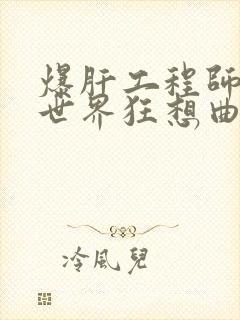 爆肝工程師
世界狂想曲
冷風兒